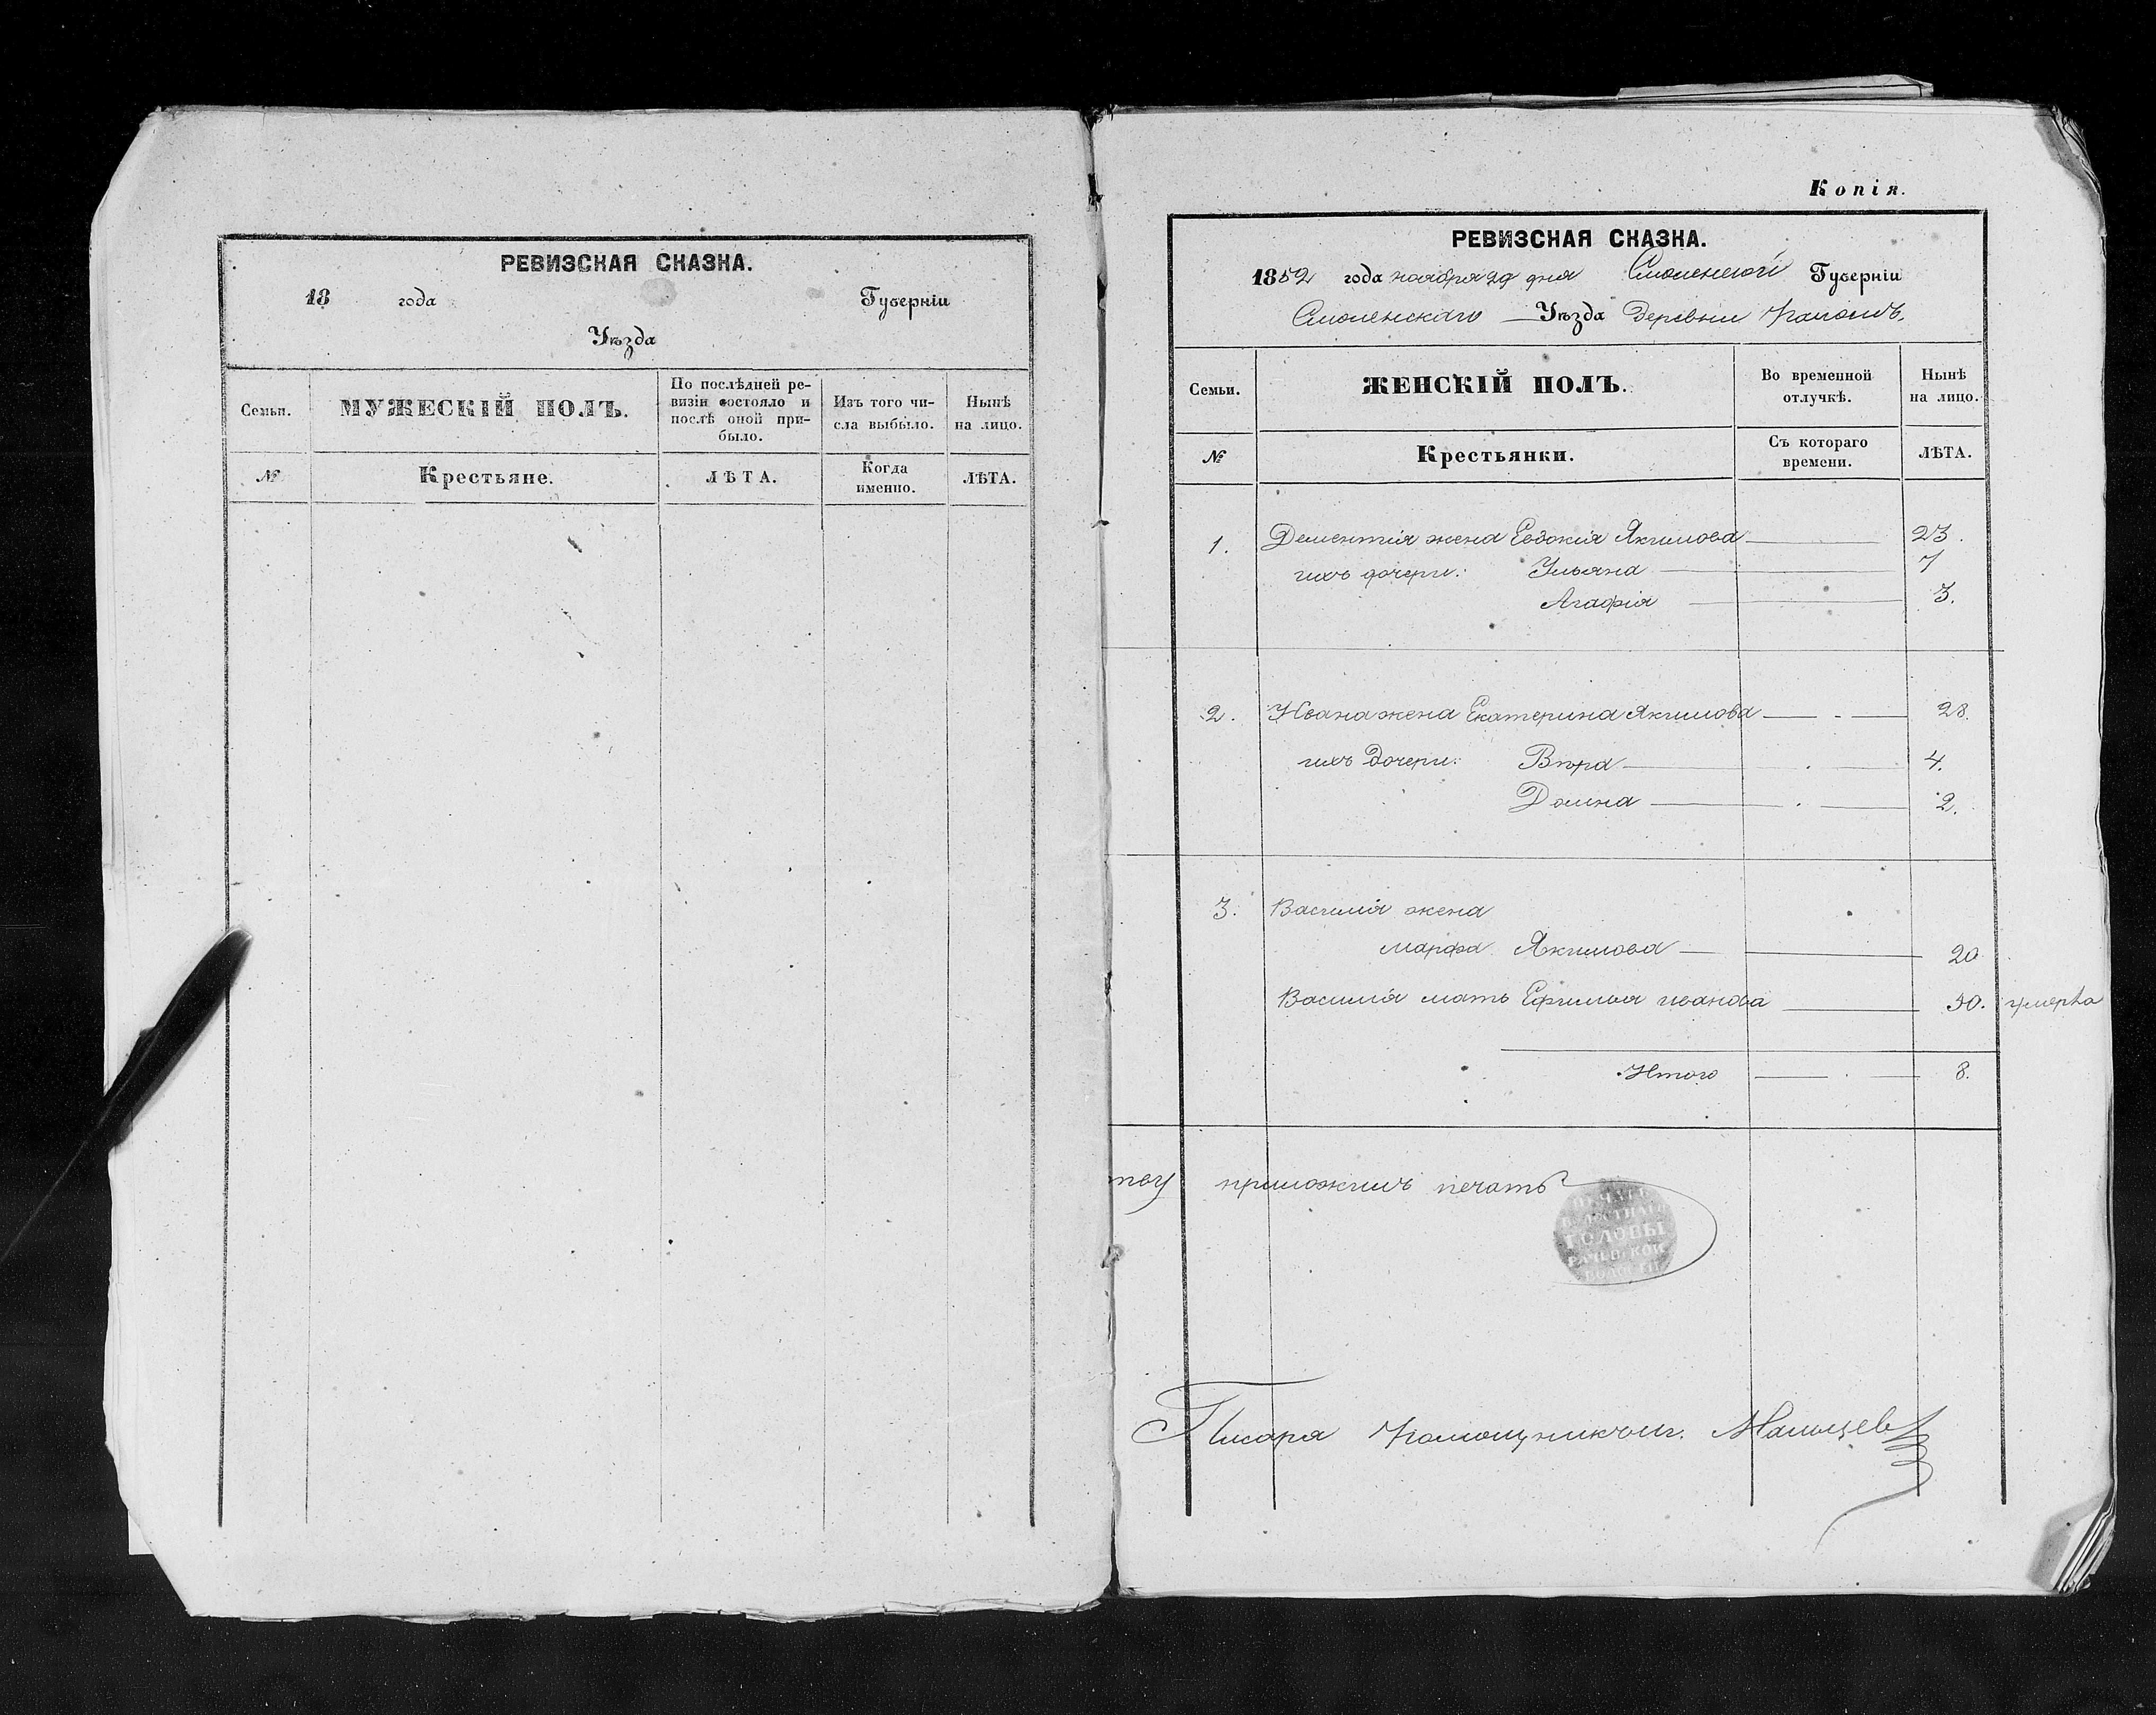 РЕВИЗСКАЯ СКАЗКА.
18 года Губернiи
Уѣзда
Семьи.
МУЖЕСКIЙ ПОЛЪ.
По послѣдней ре-
визiи состояло и
послѣ оной при-
было.
Изъ того чи-
сла выбыло.
Нынѣ
на лицо.
№
Крестьяне.
ЛѢТА.
Когда
именно.
ЛѢТА.
Копiя.
РЕВИЗСКАЯ СКАЗКА.
1852 года ноября 29 дня Смоленской Губернiи
Смоленскаго Уѣзда Деревни
Семьи.
ЖЕНСКIЙ ПОЛЪ.
Во временной
отлучкѣ.
Нынѣ
на лицо.
№
Крестьянки.
Съ котораго
времени.
ЛѢТА.
1. Дементiя жена Евдокiя Якимова 23.
ихъ дочери: Ульяна 7
Агафiя 3.
2. Ивана жена Екатерина Якимова 28.
ихъ дочери: Вѣра 4.
Домна 2.
3. Василiя жена
Марфа Якимова 20
Василiя мать Ефимья иванова 50. умерла
Итого 8.
приложилъ печать
ГОЛОВЫ
Писаря Мальцев